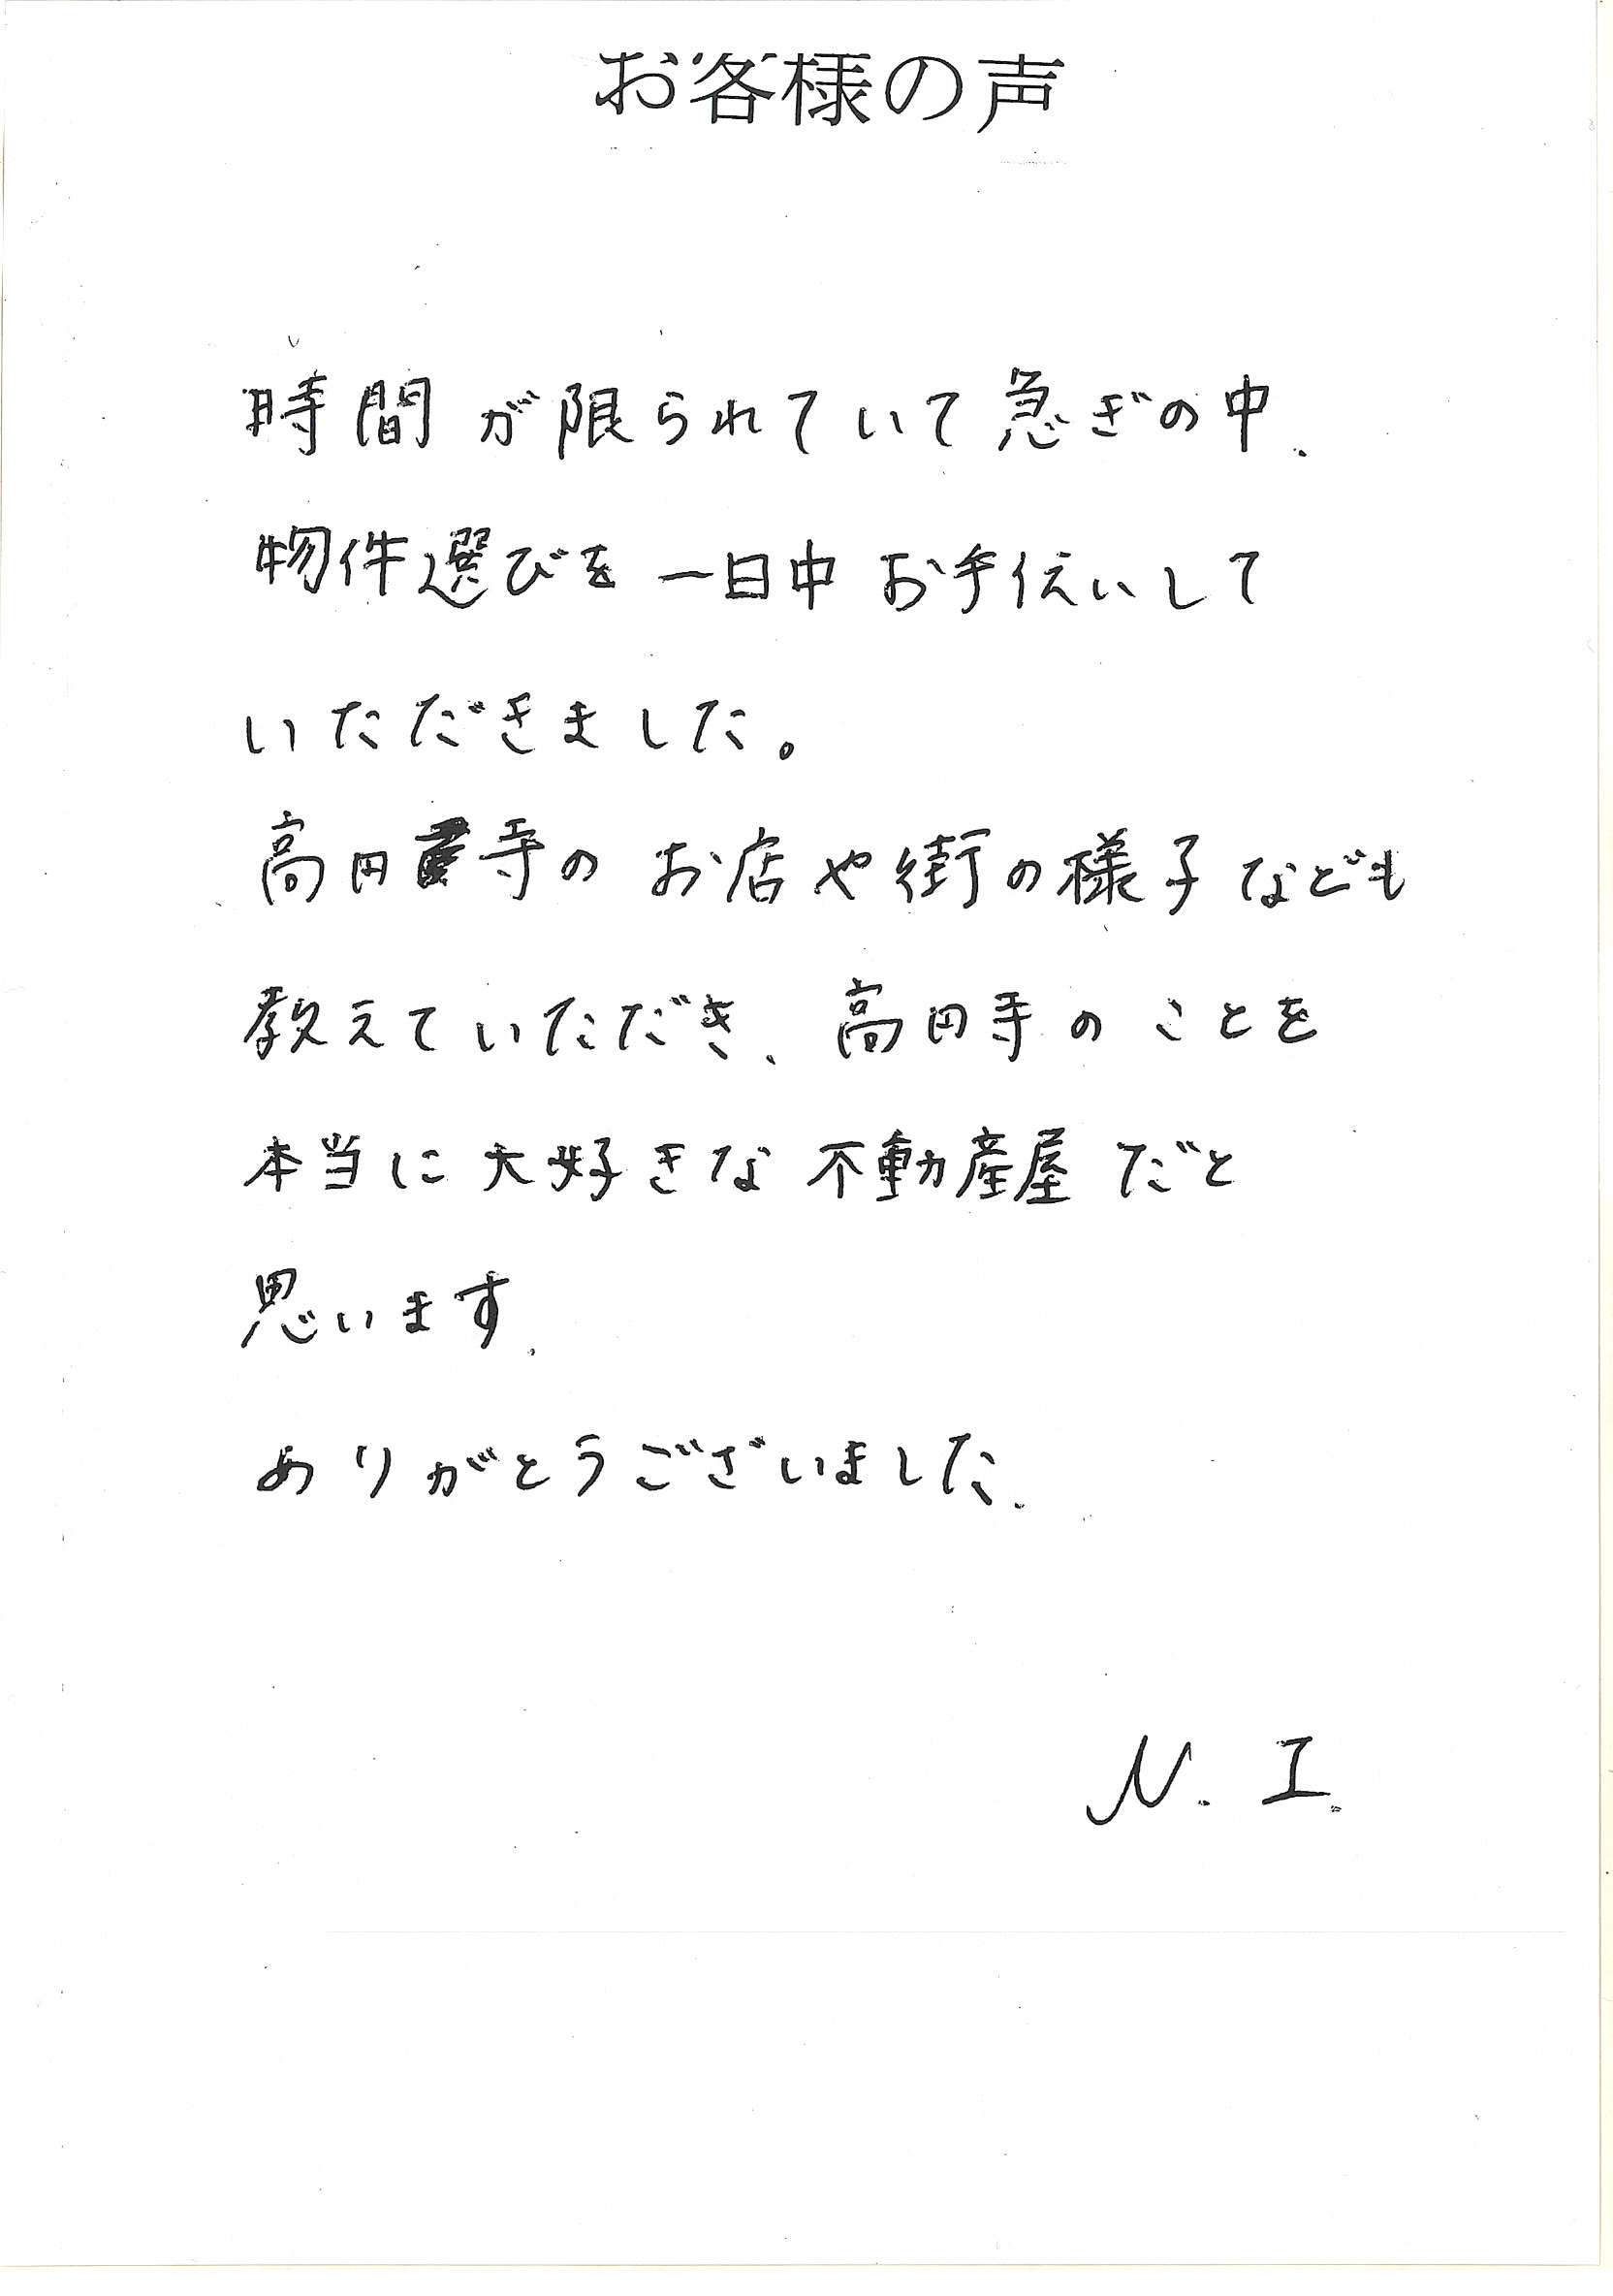 お客様の声
時間が限られていて急ぎの中、
物件選びを一日中お手伝いして
いただきました。
高円寺のお店や街の様子なども
教えていただき、高円寺のことを
本当に大好きな不動産屋だと
思います。
ありがとうございました。
N. I.